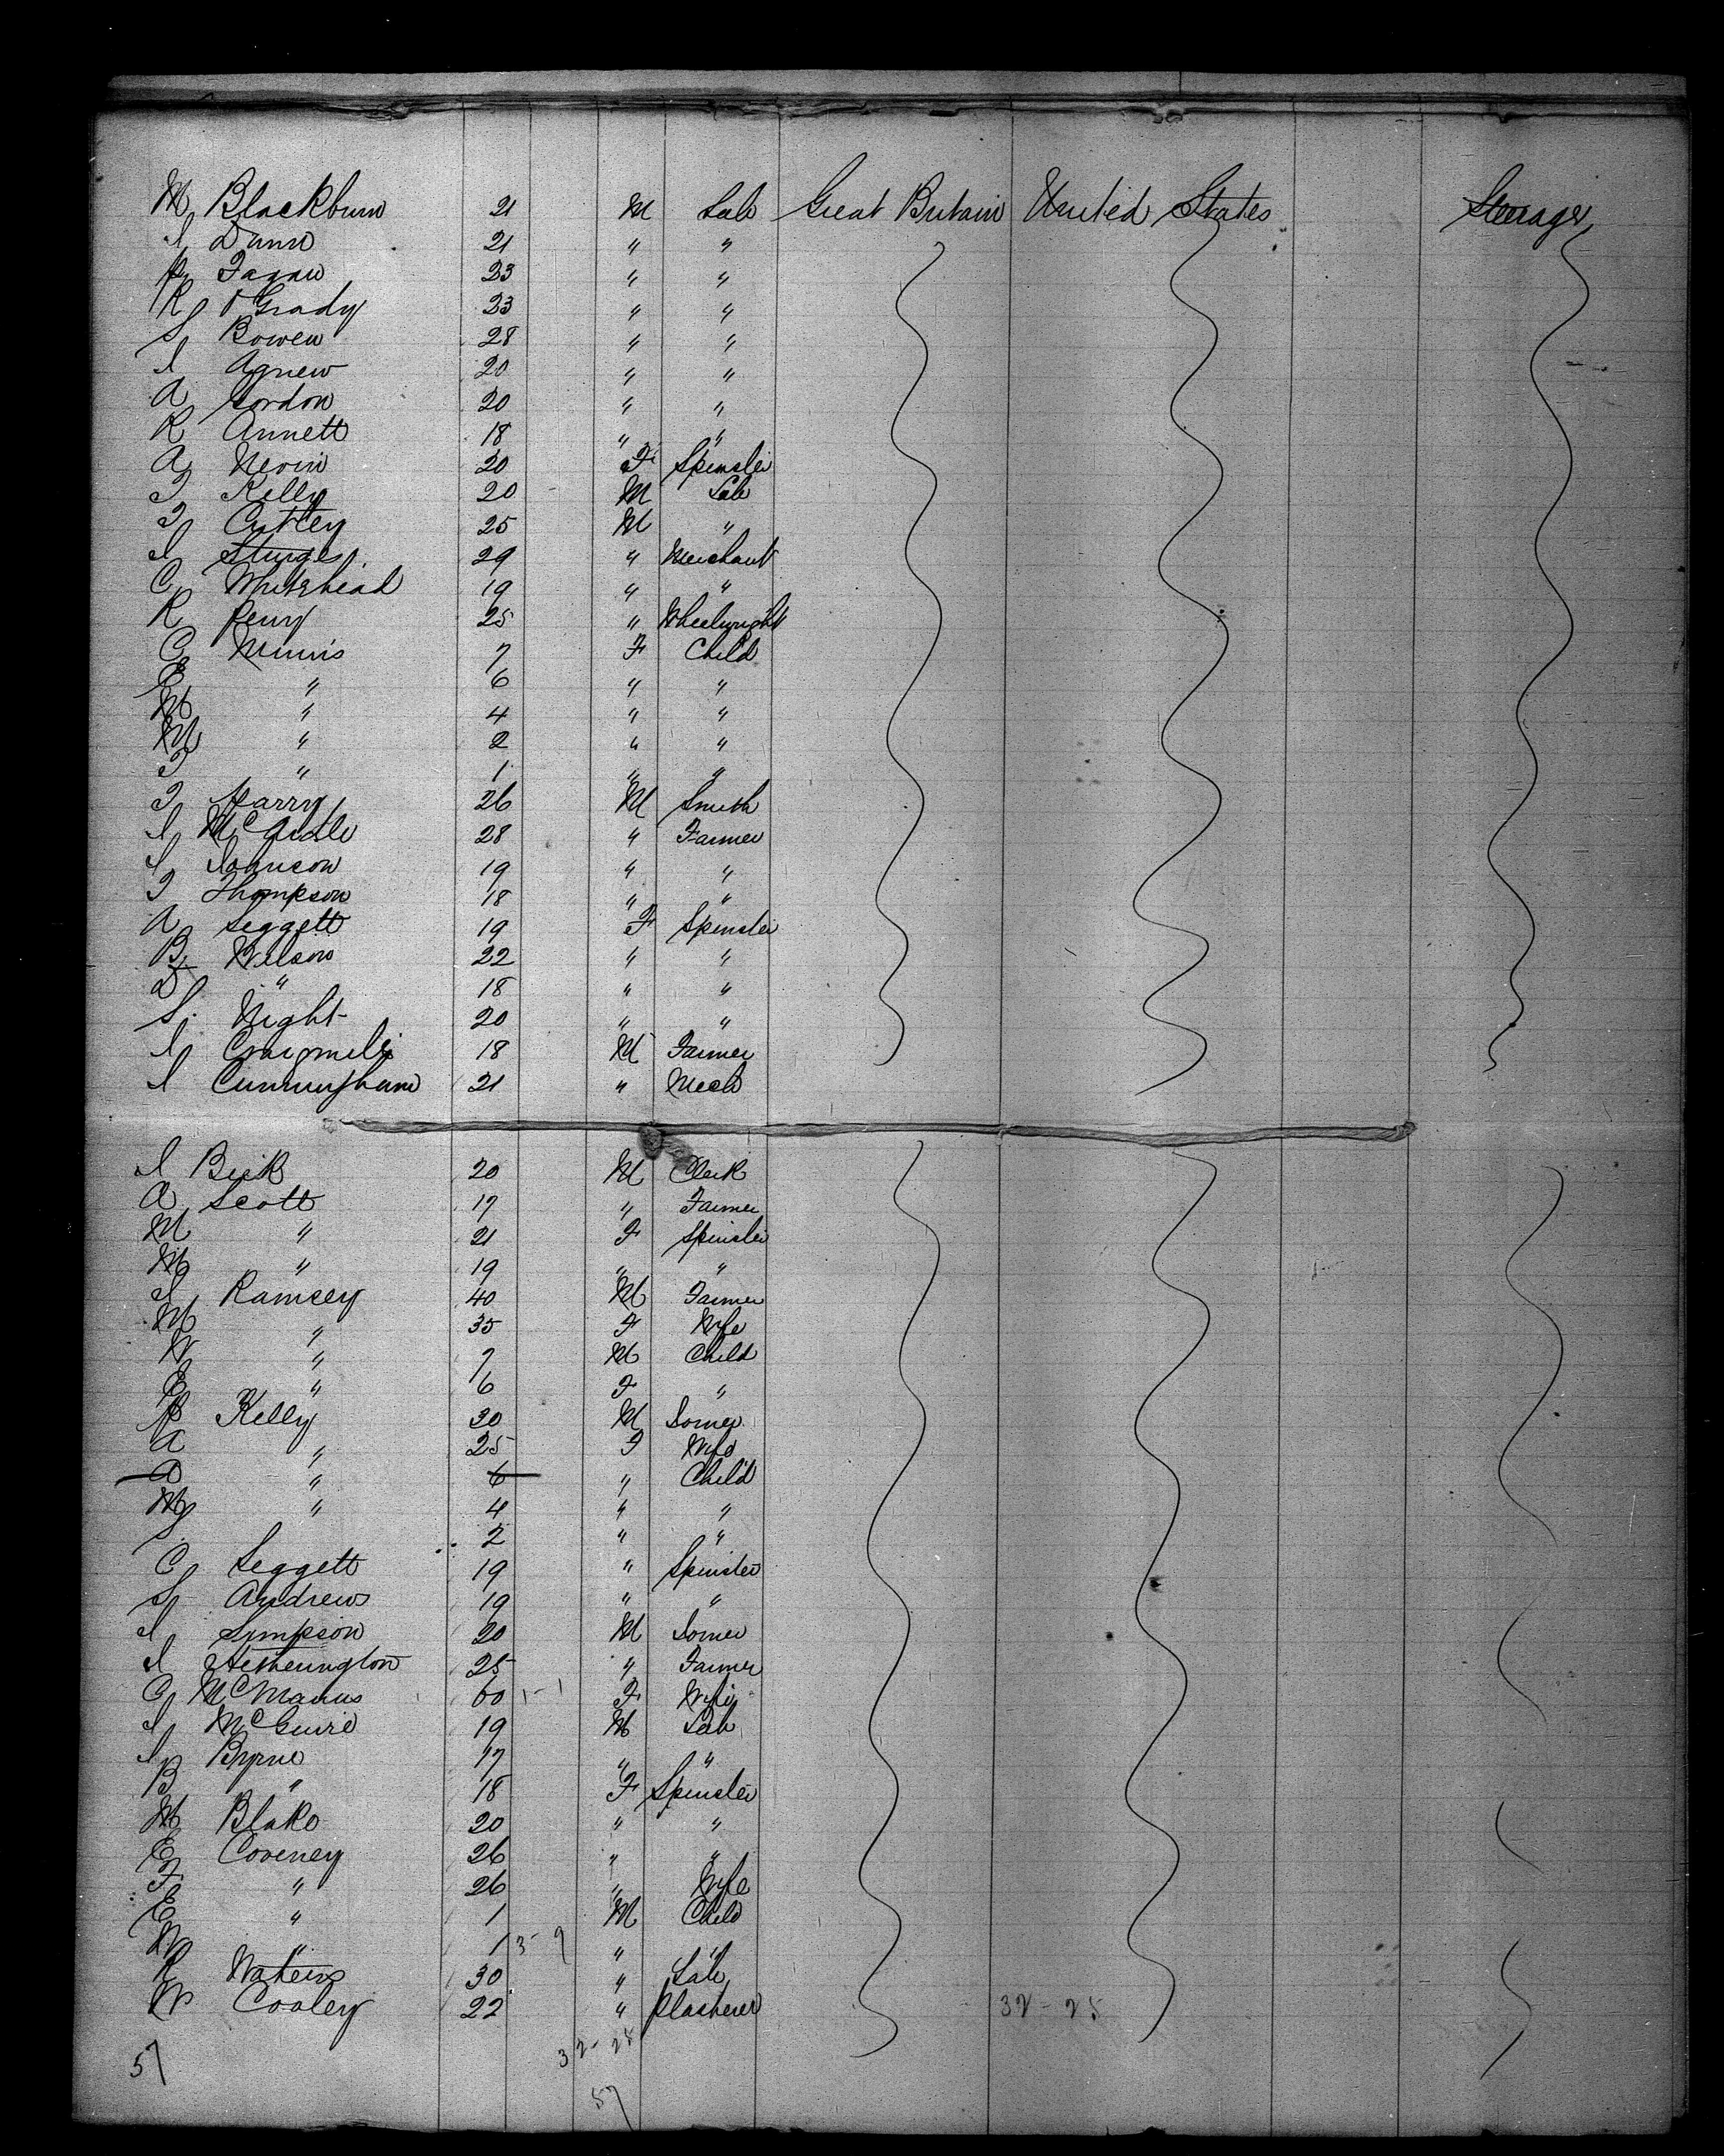 M Blackburn 21 M Lab Great Britain United States Steerage
J Dunn 21 " "
P Fagan 23 " "
R O'Grady 23 " "
S Bowen 28 " "
J Agnew 20 " "
A Gordon 20 " "
R Annett 18 " "
A Nevin 20 F Spinster
T Kelly 20 M Lab
T 25 M "
J Sturges 29 " Merchant
C Muirhead 19 " "
R Perry 25 " Wheelwright
C Minnis 7 F Child
E " 6 " "
M " 4 " "
M " 2 " "
T " 1 " "
T Harry 26 M Smith
J McArdle 28 " Farmer
S Johnson 19 " "
T Thompson 18 " "
A Leggett 19 F Spinster
B Wilson 22 " "
D " 18 " "
S Night 20 " "
J Craigmile 18 M Farmer
J Cunningham 21 " Mech
J Beik 20 M Clerk
A Scott 17 " Farmer
M " 21 F Spinster
M " 19 " "
J Ramsey 40 M Farmer
M " 35 F Wife
W " 7 M Child
E " 6 F "
P Kelly 30 M Joiner
A " 25 F Wife
A " 6 " Child
M " 4 " "
S 2 " "
C Leggett 19 " Spinster
S Andrews 19 " "
J Simpson 20 M Joiner
J Hetherington 25 " Farmer
C McManus 60 1-1 F Wife
J McGuire 19 M Lab
J Byrne 17 " "
B " 18 F Spinster
M Blake 20 " "
E Coveney 26 " "
F " 26 " Wife
E " 1 M Child
W " 1 3- 9 " "
R Waters 30 " Lab
W Cooley 22 " Plasterer 32-25
32-25
57
57